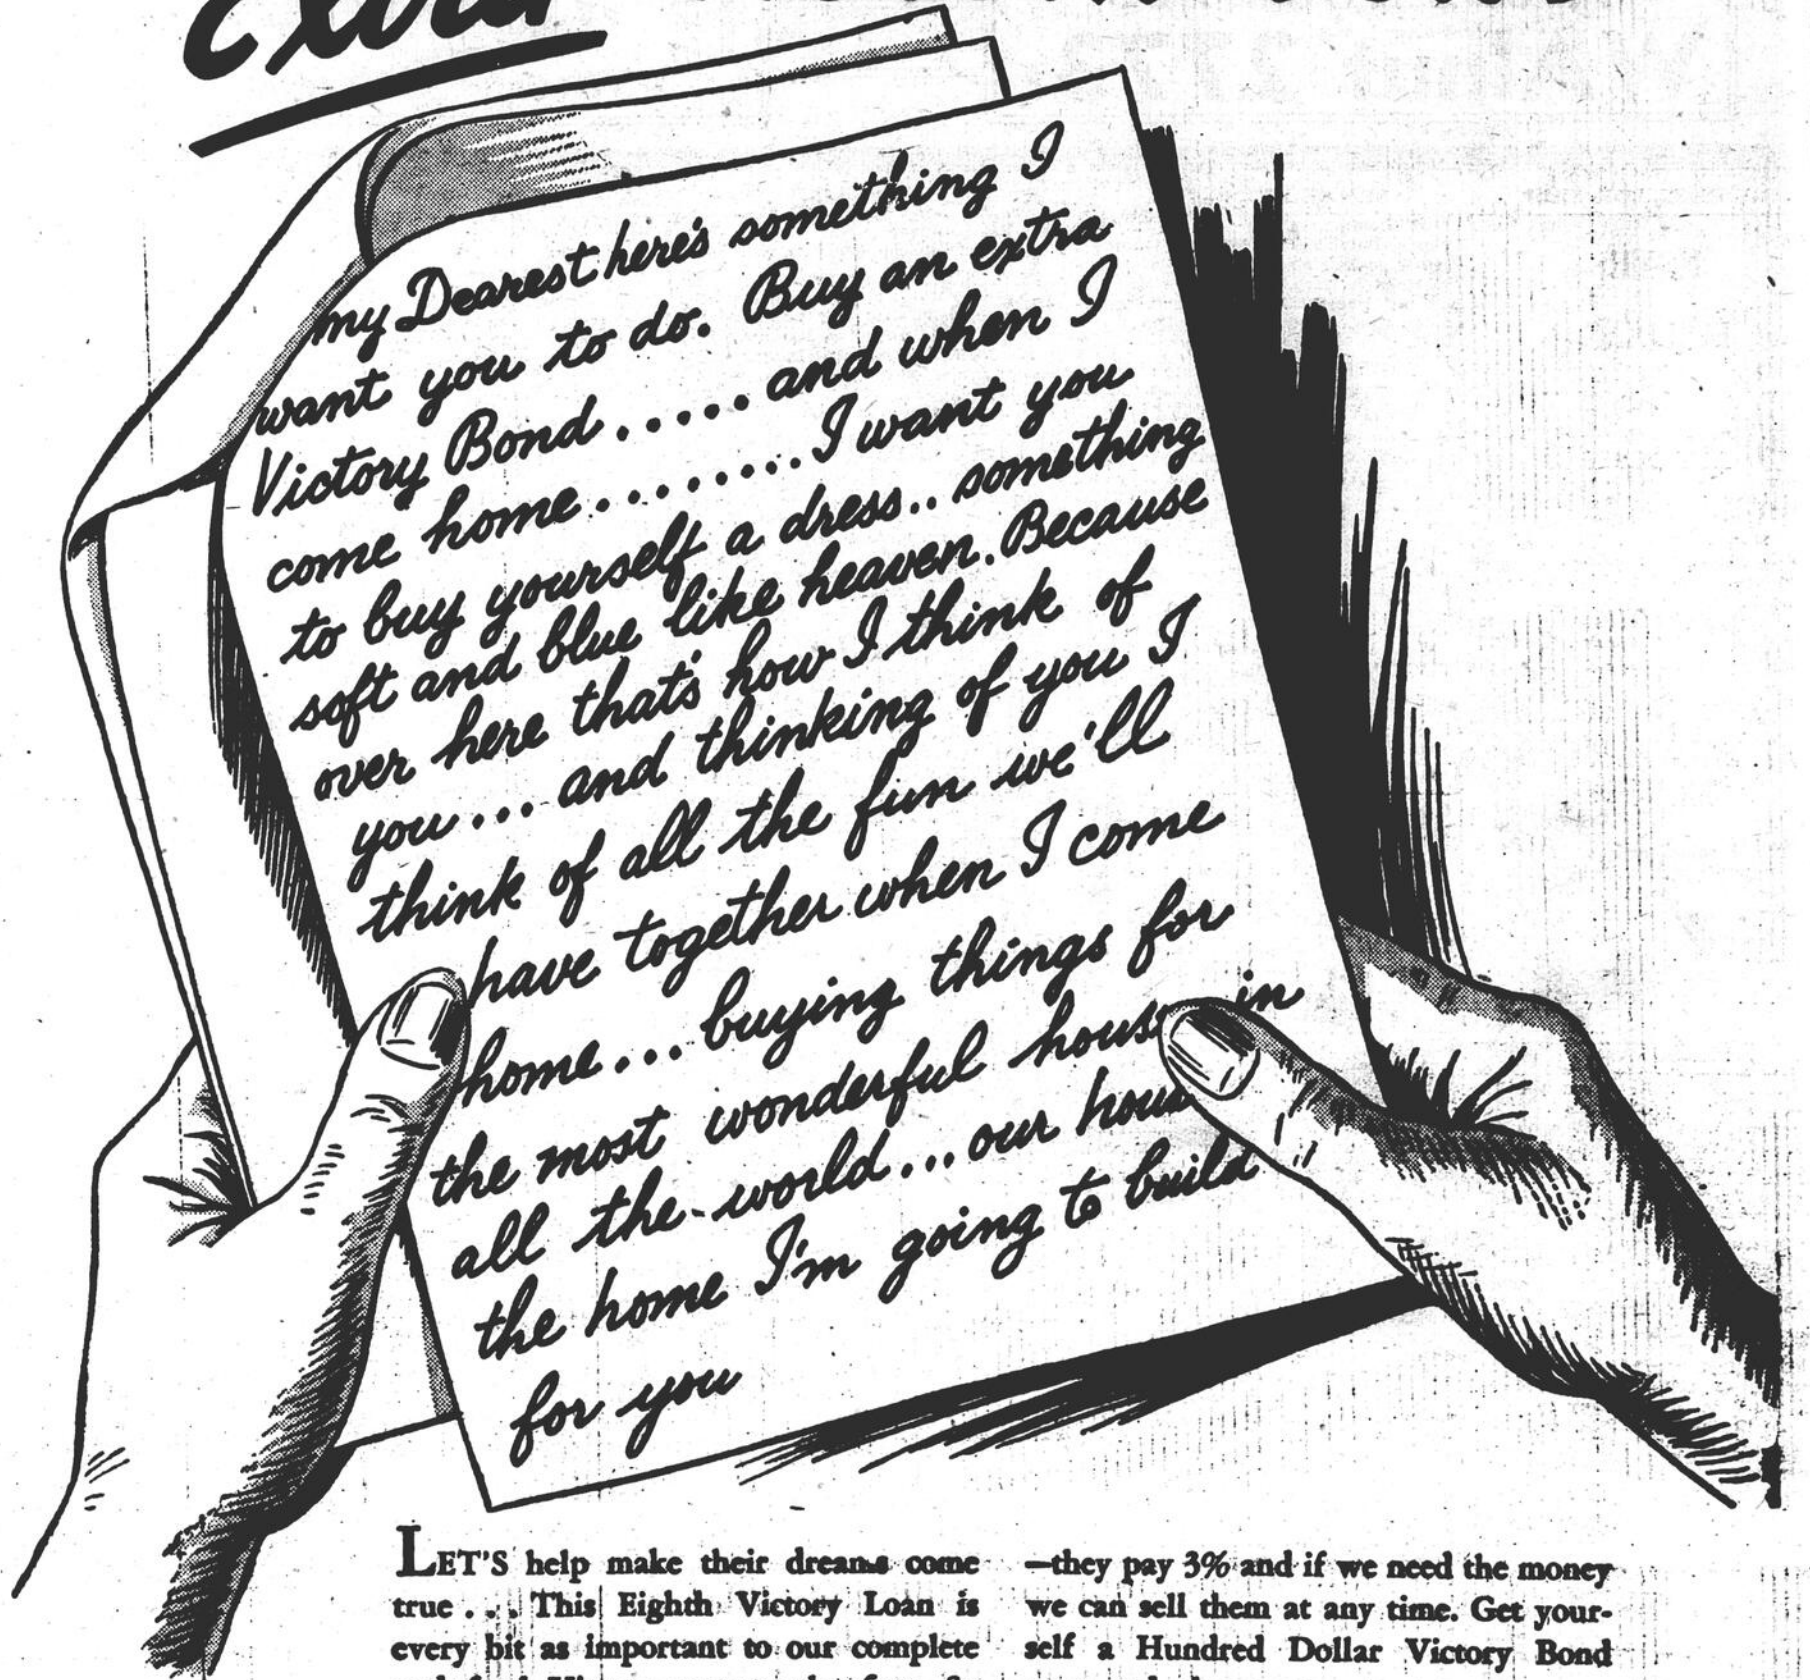 Extra
my Dearest here's something I
want you to do. Buy an extra
Victory Bond ..... and when I
come home ........ I want you
to buy yourself a dress.. something
soft and blue like heaven. Because
over here that's how I think of
you... and thinking of you I
think of all the fun we'll
have together when I come
home... buying things for
the most wonderful house in
all the world... our hous
the home I'm going to build
for you
LET'S help make their dreams come
true . . . This Eighth Victory Loan is
every bit as important to our complete
—they pay 3% and if we need the money
we can sell them at any time. Get your-
self a Hundred Dollar Victory Bond